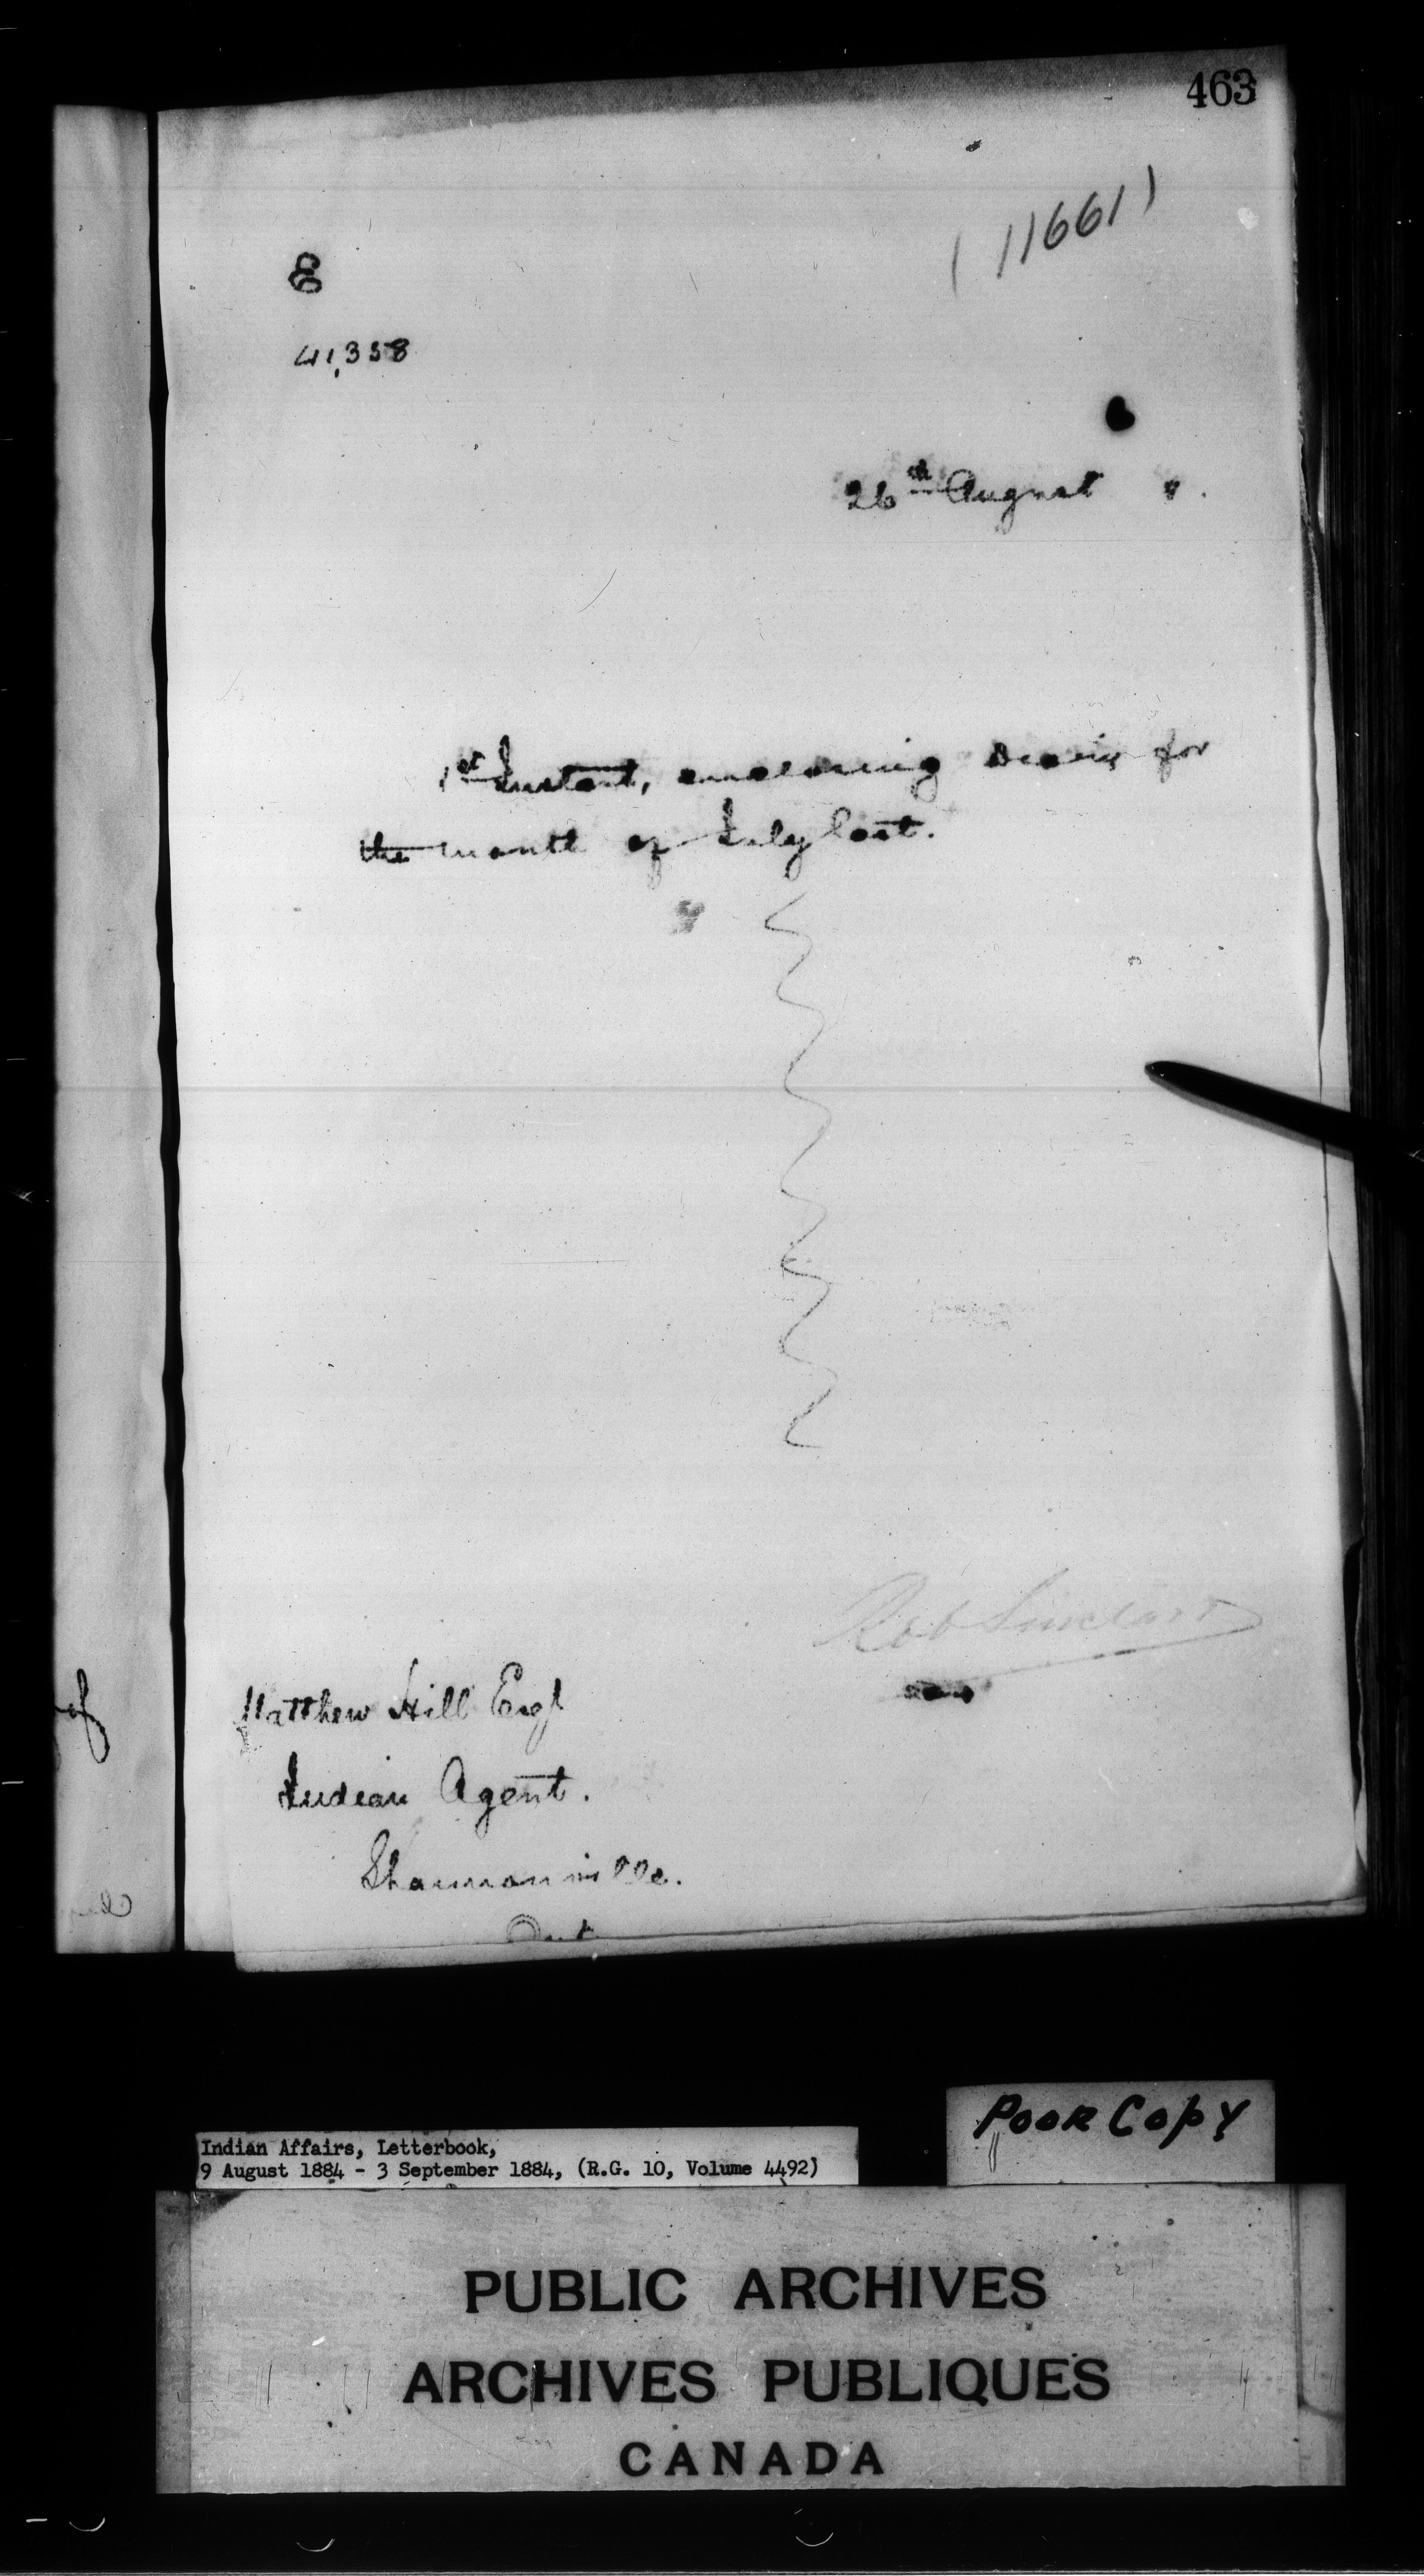 463
(11661)
E
41,358
26th August
1st Instant, enclosing Diary for
the month of July last.
Rob Sinclair
Matthew Hill Esq
Indian Agent.
Shannonville.
Ont
of
Poor Copy
Indian Affairs, Letterbook,
9 August 1884 - 3 September 1884, (R.G. 10, Volume 4492)
PUBLIC ARCHIVES
ARCHIVES PUBLIQUES
CANADA